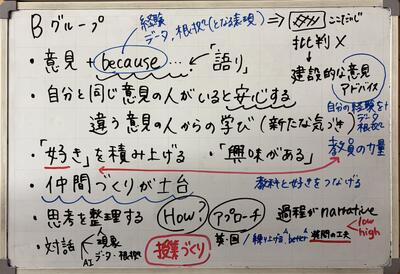 Bグループ
経験
データ、根拠(となる表現) ⇒ ここだけ
批判 ×
・意見 + because … 「語り」
→ 建設的な意見
アドバイス
・自分と同じ意見の人がいると安心する
違う意見の人からの学び(新たな気づき)
自分の経験を+
データ
根拠
・「好き」を積み上げる ・「興味がある」
教員の力量
・仲間づくりが土台
教科と好きをつなげる
・思考を整理する How? アプローチ 過程がnarrative
・対話
現象
データ・根拠
AI
授業づくり
英・国/練り上げる better 質問の工夫
low
high